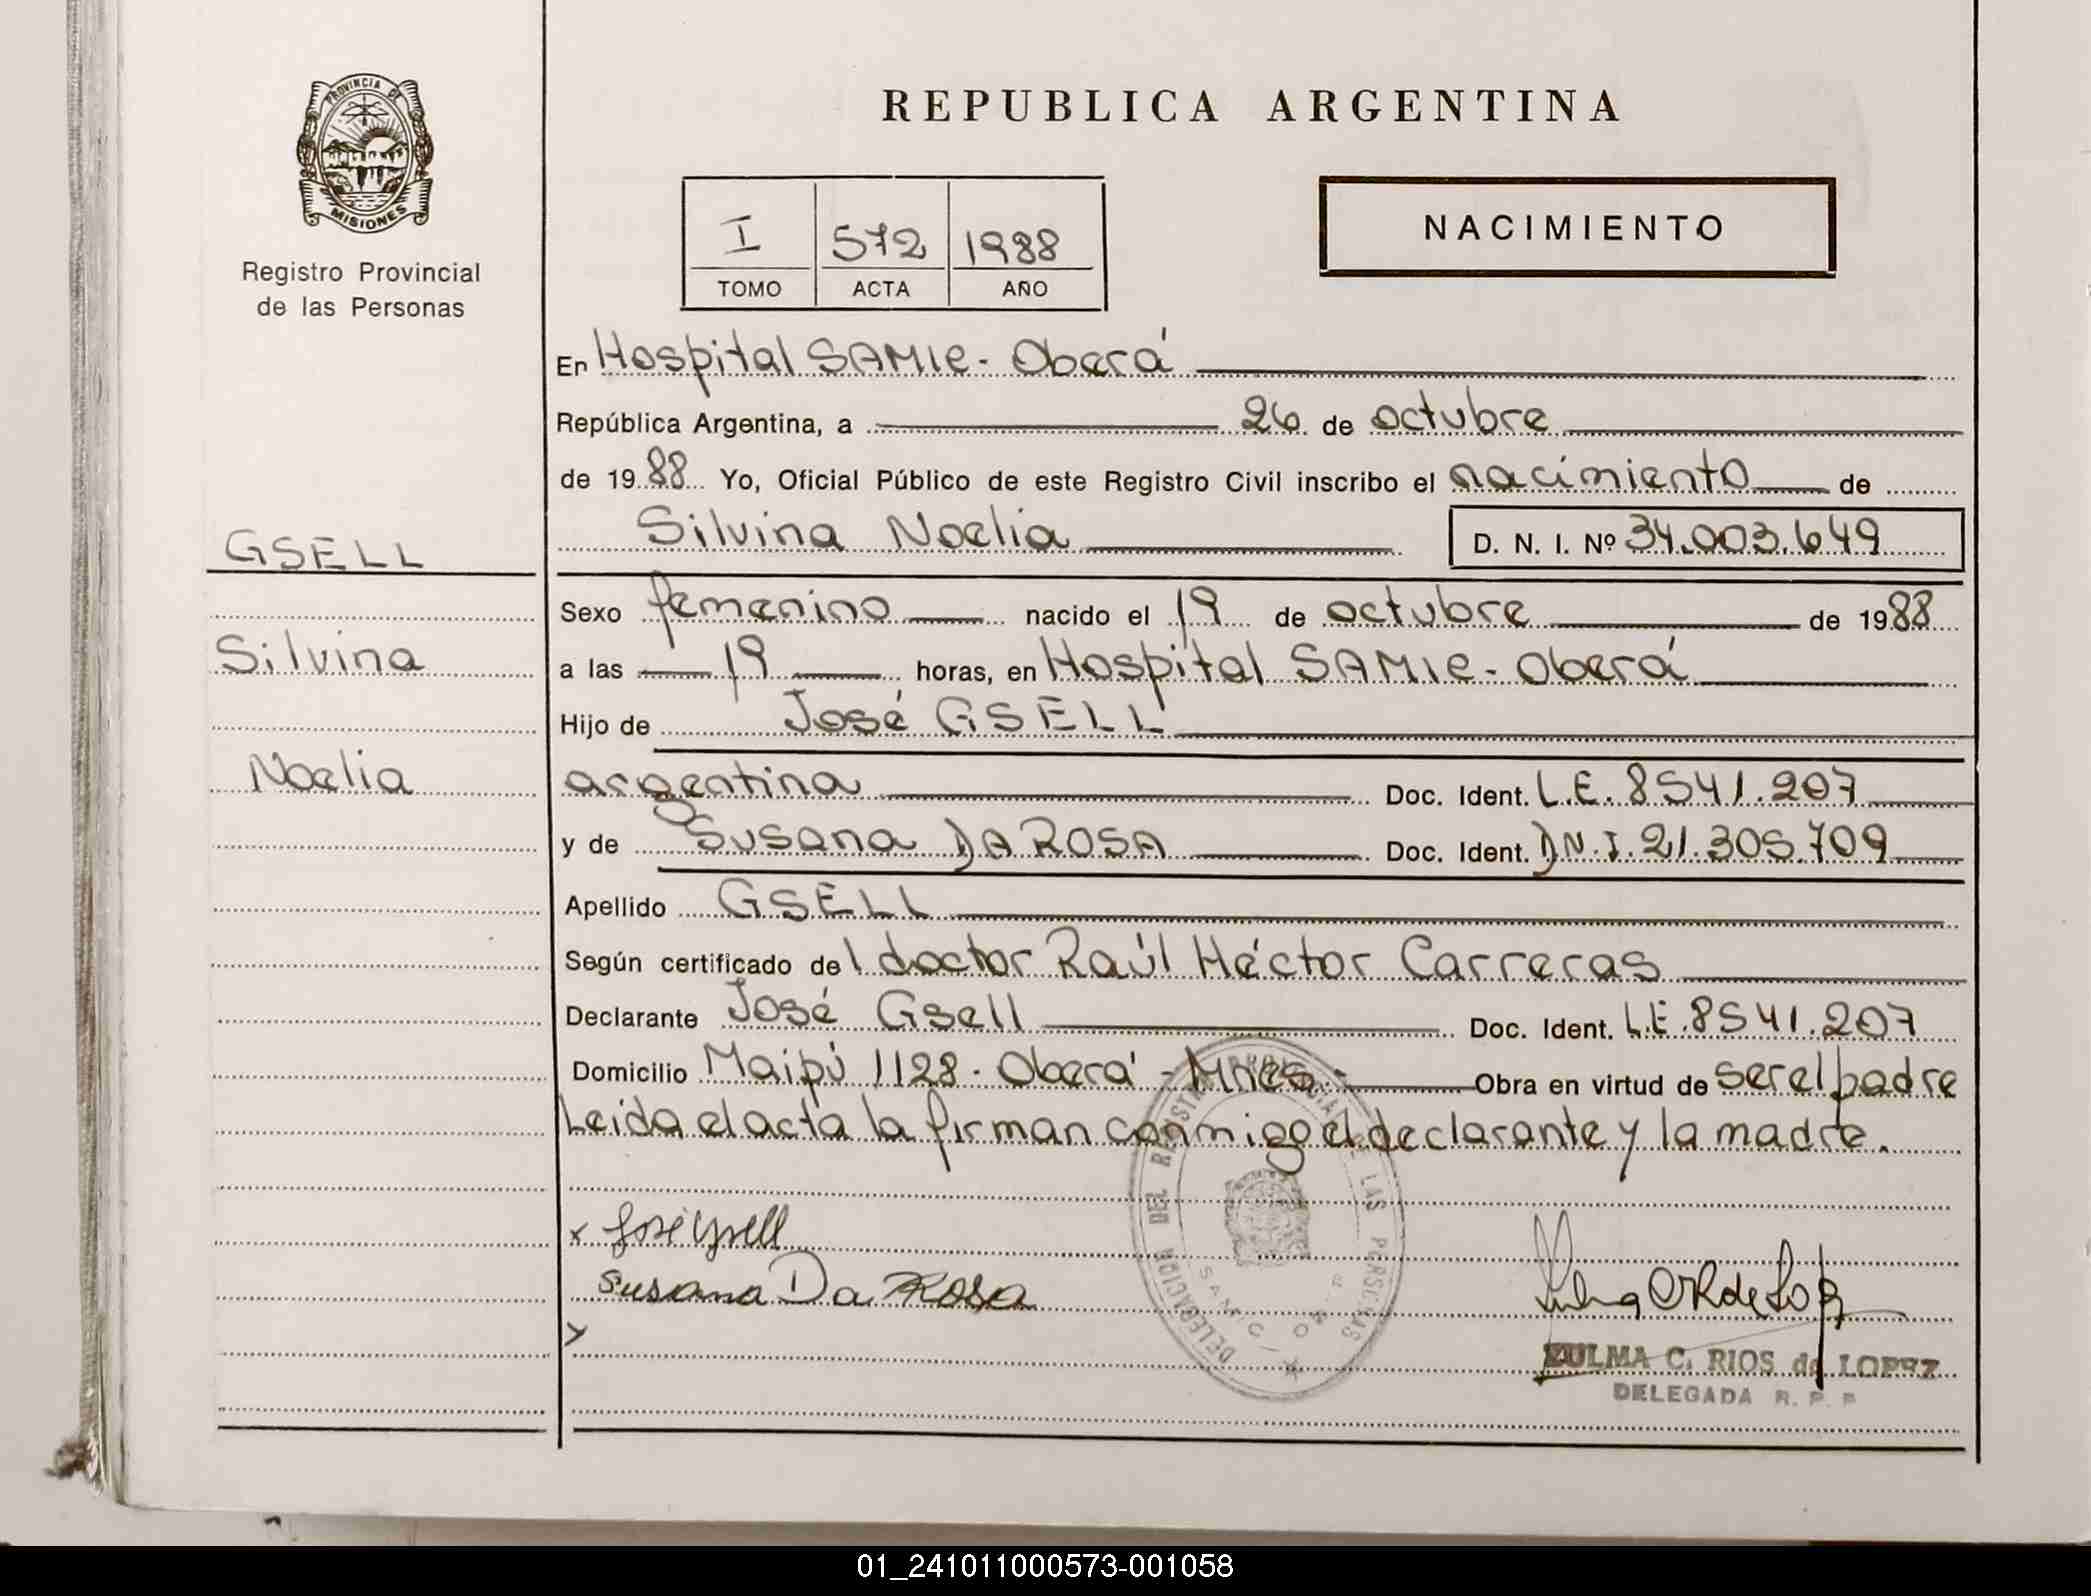 PROVINCIA DE
MISIONES
Registro Provincial
de las Personas
REPUBLICA ARGENTINA
I 572 1988
TOMO ACTA AÑO
NACIMIENTO
En Hospital SAMIC - Oberá
República Argentina, a 26 de octubre
de 1988 Yo, Oficial Público de este Registro Civil inscribo el nacimiento de
Silvina Noelia D. N. I. Nº 34.003.649
GSELL
Silvina
Noelia
Sexo femenino nacido el 19 de octubre de 1988
a las 19 horas, en Hospital SAMIC - Oberá
Hijo de José GSELL
argentina Doc. Ident. L.E. 8541.207
y de Susana DA ROSA Doc. Ident. D.N.I. 21.305.709
Apellido GSELL
Según certificado del doctor Raúl Héctor Carreras
Declarante José Gsell Doc. Ident. L.E. 8541.207
Domicilio Maipú 1128 - Oberá - Mnes - Obra en virtud de ser el padre
Leida el acta la firman conmigo el declarante y la madre.
x José Gsell
Susana Da Rosa
DELEGACION DEL REGISTRO PROVINCIAL DE LAS PERSONAS
ZULMA C. RIOS de LOPEZ
DELEGADA R. P. P
01_241011000573-001058